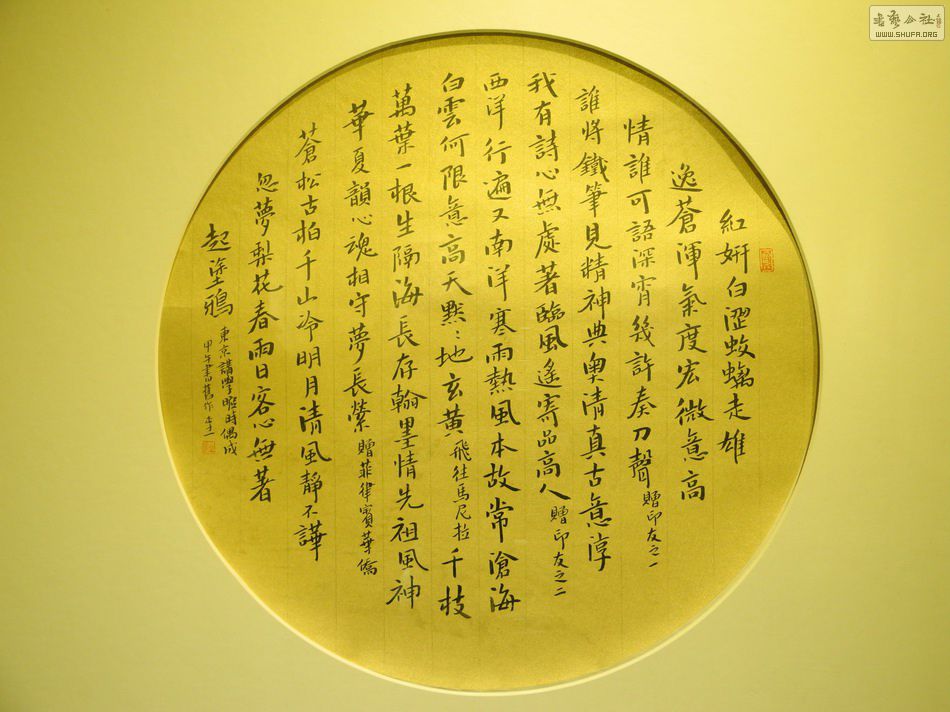 紅妍白澀蚊螭走雄
逸蒼渾氣度宏微意高
情誰可語深宵幾許奏刀聲 贈印友之一
誰將鐵筆見精神典奧清真古意淳
我有詩心無處著臨風遙寄品高人 贈印友之二
西洋行遍又南洋寒雨熱風本故常滄海
白雲何限意高天默〻地玄黃 飛往馬尼拉 千枝
萬葉一根生隔海長存翰墨情先祖風神
華夏韻心魂相守夢長縈 贈菲律賓華僑
蒼松古柏千山冷明月清風靜不譁
忽夢梨花春雨日客心無著
起塗鴉 東京講學暇時偶成
甲午書舊作
WWW.SHUFA.ORG